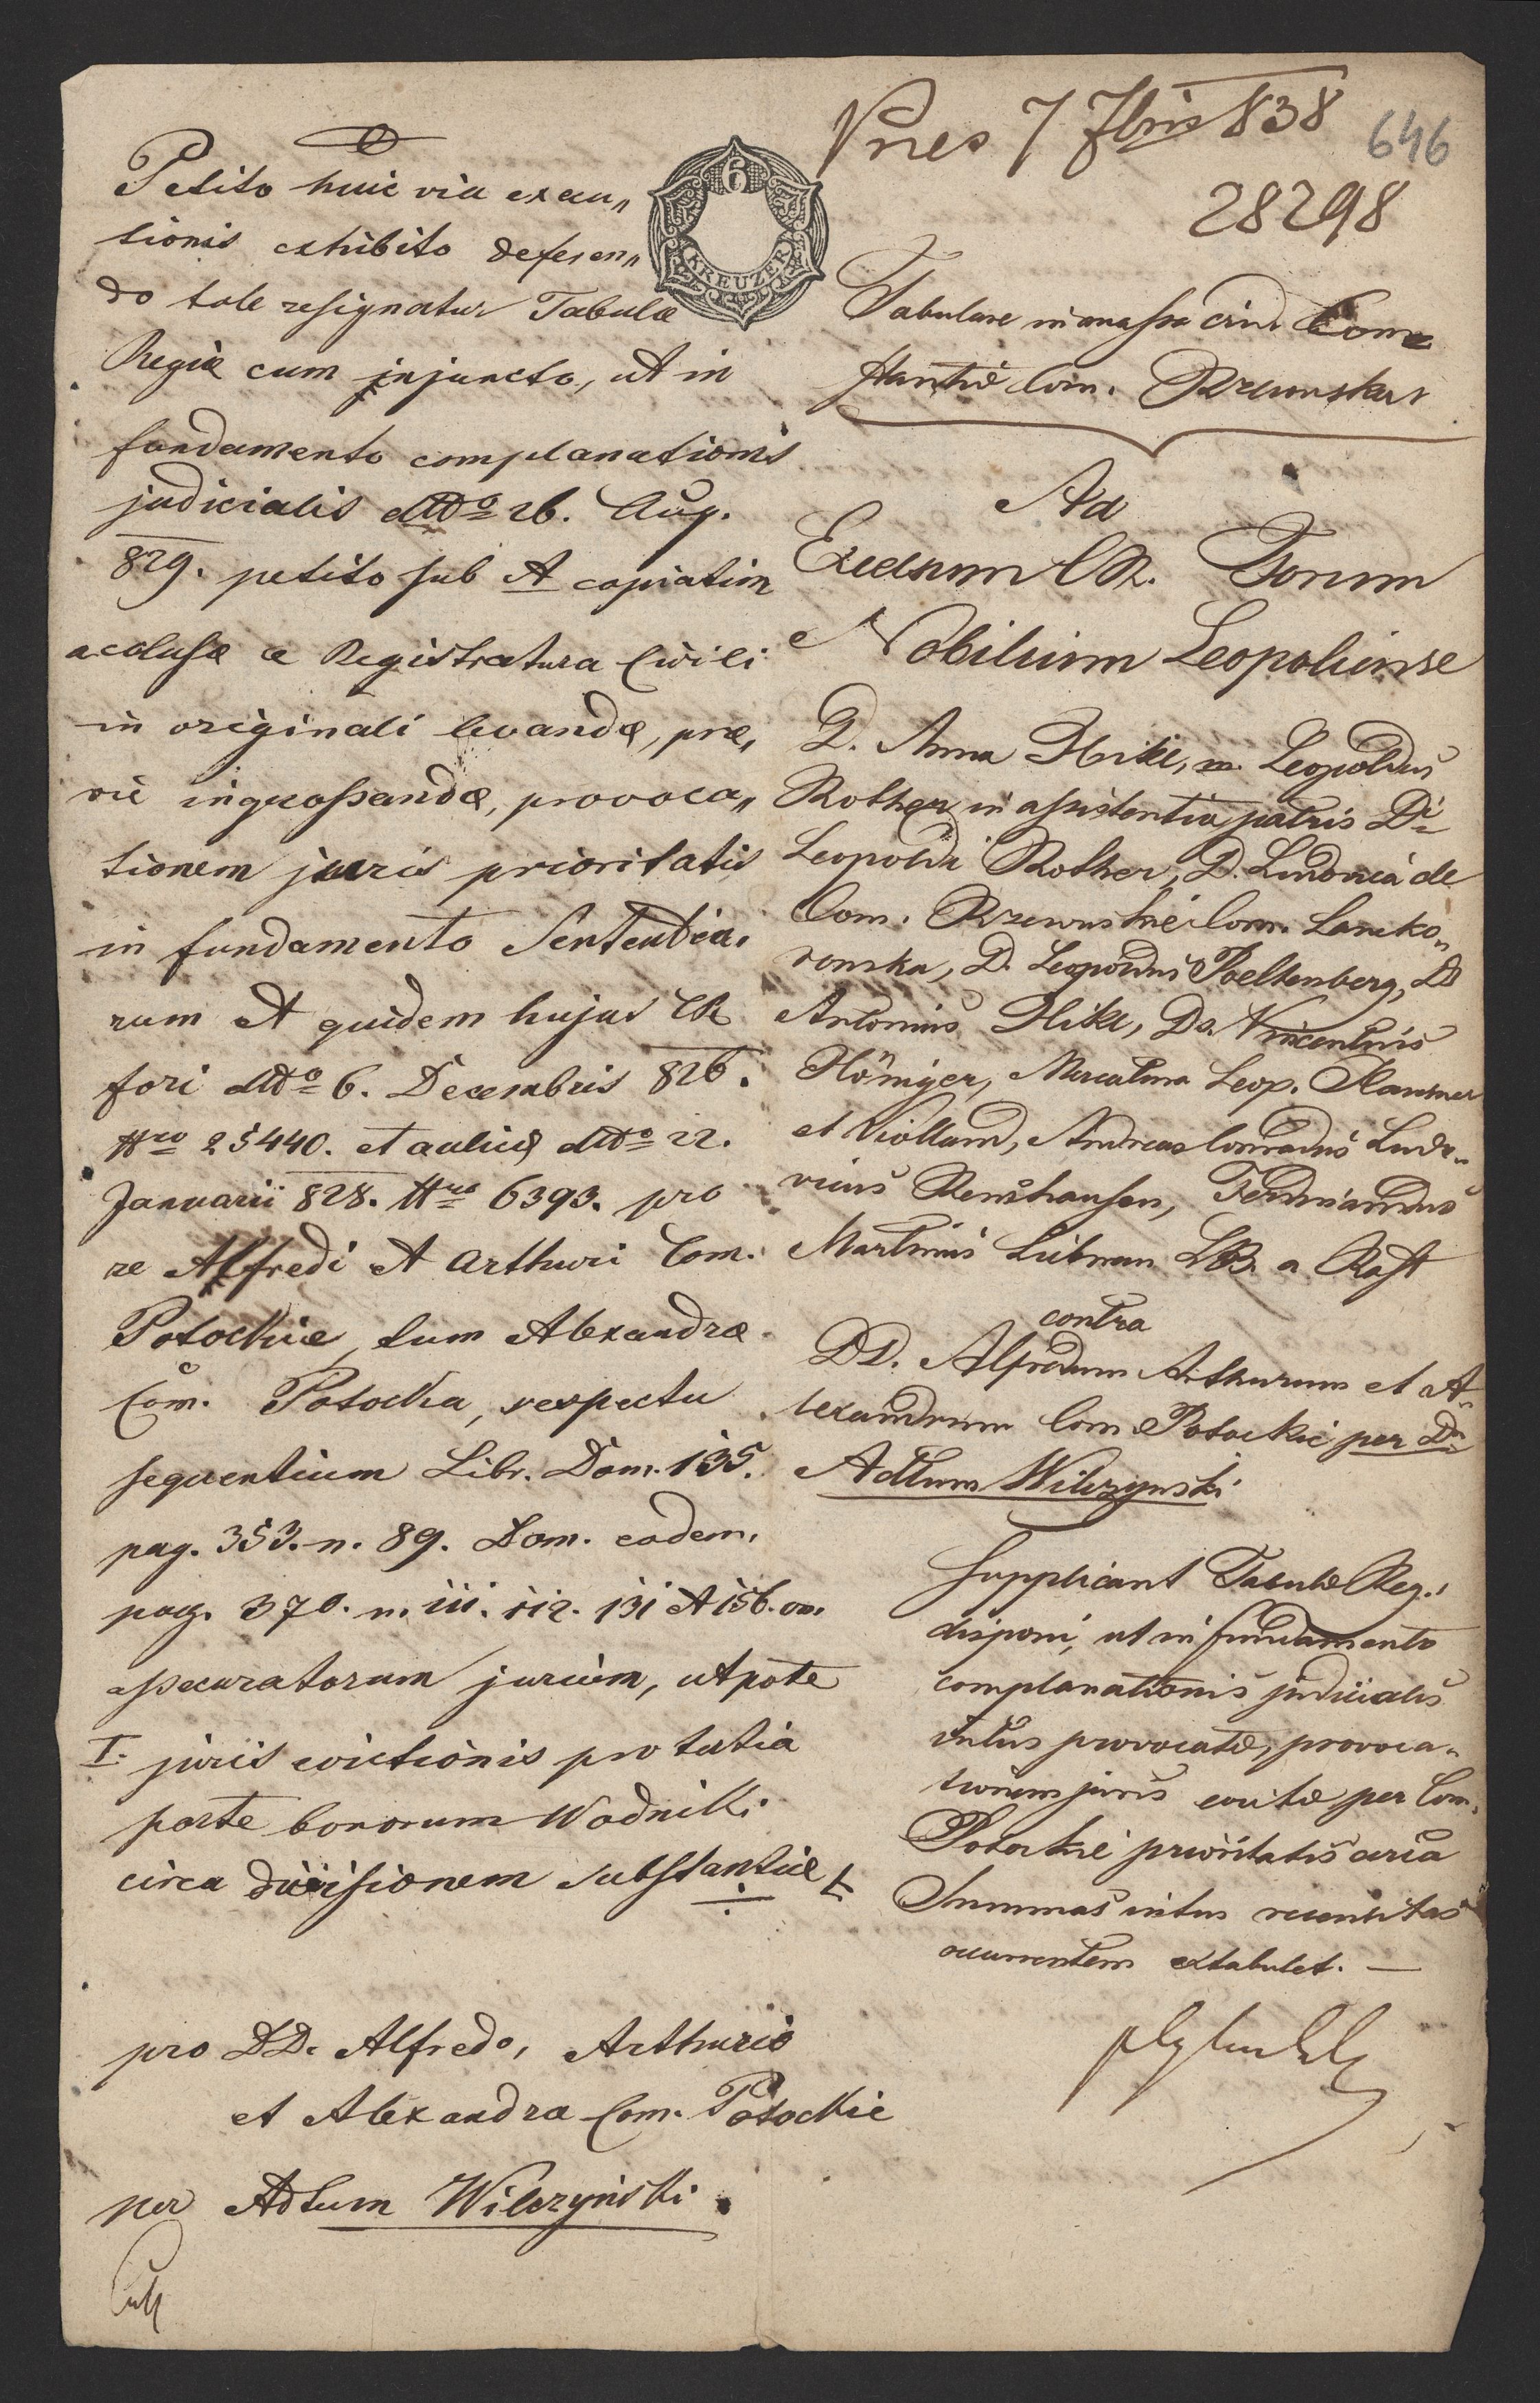 Pnes 7 7bris 838
646
28298
6
KREUZER
Petito huic via execu„
tionis exhibito deferen„
do tale resignatur Tabulæ
Regiæ cum injuncto, ut in
fundamento complanationis
judicialis ddto 26. Aug.
829. petito sub A copiatim
acclusæ a Registratura Civili
in originali levandæ, præ„
vie ingrossandæ, provoca„
tionem juris prioritatis
in fundamento Sententia„
rum et quidem hujus CR
fori ddto 6. Decembris 826.
Nro 25440. et aulicæ ddto 22.
Januarii 828. Nro 6393. pro
re Alfredi et Arthuri Com.
Potockie, tum Alexandræ
Com. Potocka, respectu
sequentium Libr. Dom. 135.
pag. 353. n. 89. Dom. eodem.
pag. 370. n. 111. 112. 131 et 156. on.
assecuratorum jurium, utpote
I. juris evictionis pro tertia
parte bonorum Wodniki
circa divisionem substantiæ
pro DD. Alfredo, Arthuro
et Alexandra Com. Potockie
per Adtum Wilczyński.
Tabulare in massa crid Con
stantiæ Com. Rzewuskar
Ad
Excelsum CR. Forum
Nobilium Leopoliense
D. Anna Hikl, m. Leopoldus
Rother in assistentia patris Di
Leopoldi Rother, D. Ludovica de
Com. Rzewuskie Com. Lancko„
ronska, D. Leopoldus Poeltenberg, D
Antonius Hikl, Ds. Vincentius
Höniger, Mercatura Leop. Hausner
et Violland, Andreas Conradus Ludo„
vicus Remshausen, Ferdinandus
Martinus Liebman LB. a Rast
contra
DD. Alfredum Arthurum et A„
lexandrum Com Potockie per Dn
Adtum Wilczynski
Supplicant Tabulæ Reg.
disponi, ut in fundamento
complanationis judicialis
intus provocatæ, provoca„
tionem juris per Com.
Potockie prioritatis circa
Summas intus recensitas
occurrentem extabulet. —